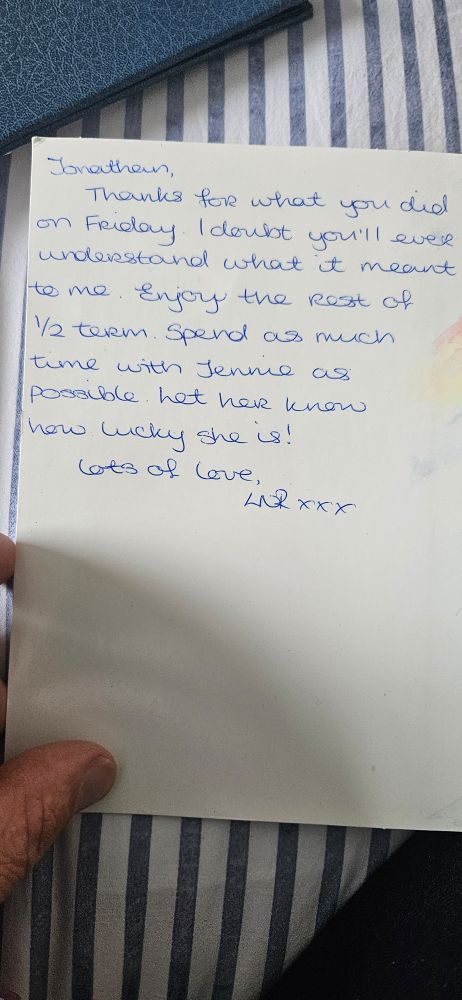 Jonathan,
Thanks for what you did
on Friday. I doubt you'll ever
understand what it meant
to me. Enjoy the rest of
1/2 term. Spend as much
time with Jennie as
possible. Let her know
how lucky she is!
Lots of love,
xxx